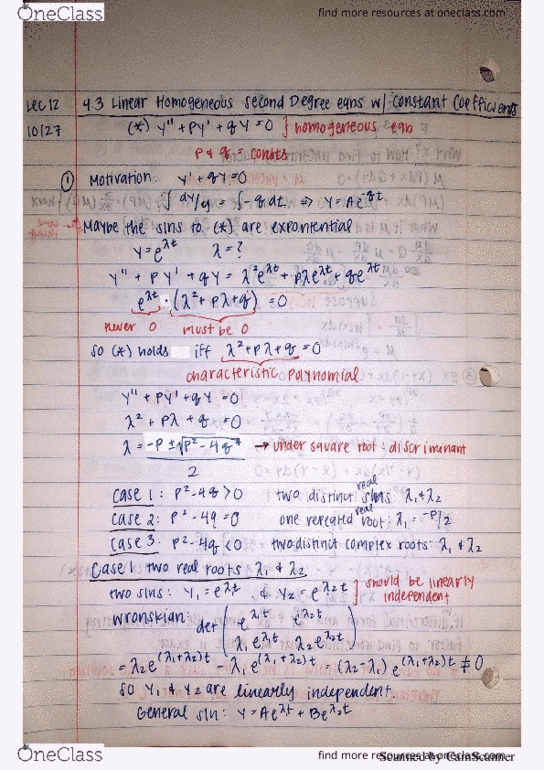 OneClass
find more resources at oneclass.com
Lec 12 4.3 Linear Homogeneous second Degree eqns w/ constant Coefficients
10/27 (*) y'' + py' + qy = 0 } homogeneous eqn
p & q = consts
① Motivation: y' + qy = 0
∫ dy/y = ∫ -q dt ⇒ y = Ae^-qt
Maybe the slns to (*) are exponential
y = e^λt λ = ?
y'' + py' + qy = λ²e^λt + pλe^λt + qe^λt
e^λt · (λ² + pλ + q) = 0
never 0 must be 0
so (*) holds iff λ² + pλ + q = 0
characteristic polynomial
y'' + py' + qy = 0
λ² + pλ + q = 0
λ = -p ± √p² - 4q → under square root = discriminant
2
Case 1: p² - 4q > 0 two distinct real slns λ₁ & λ₂
Case 2: p² - 4q = 0 one repeated real root λ₁ = -p/2
Case 3: p² - 4q < 0 two distinct complex roots: λ₁ & λ₂
Case 1 two real roots λ₁ & λ₂
two slns: y₁ = e^λt & y₂ = e^λ₂t } should be linearly independent
Wronskian: det ( e^λ₁t e^λ₂t
λ₁e^λ₁t λ₂e^λ₂t )
= λ₂e^(λ₁+λ₂)t - λ₁e^(λ₁+λ₂)t = (λ₂-λ₁)e^(λ₁+λ₂)t ≠ 0
so y₁ & y₂ are linearly independent
General sln: y = Ae^λt + Be^λ₂t
OneClass
find more resources at oneclass.com
Scanned by CamScanner